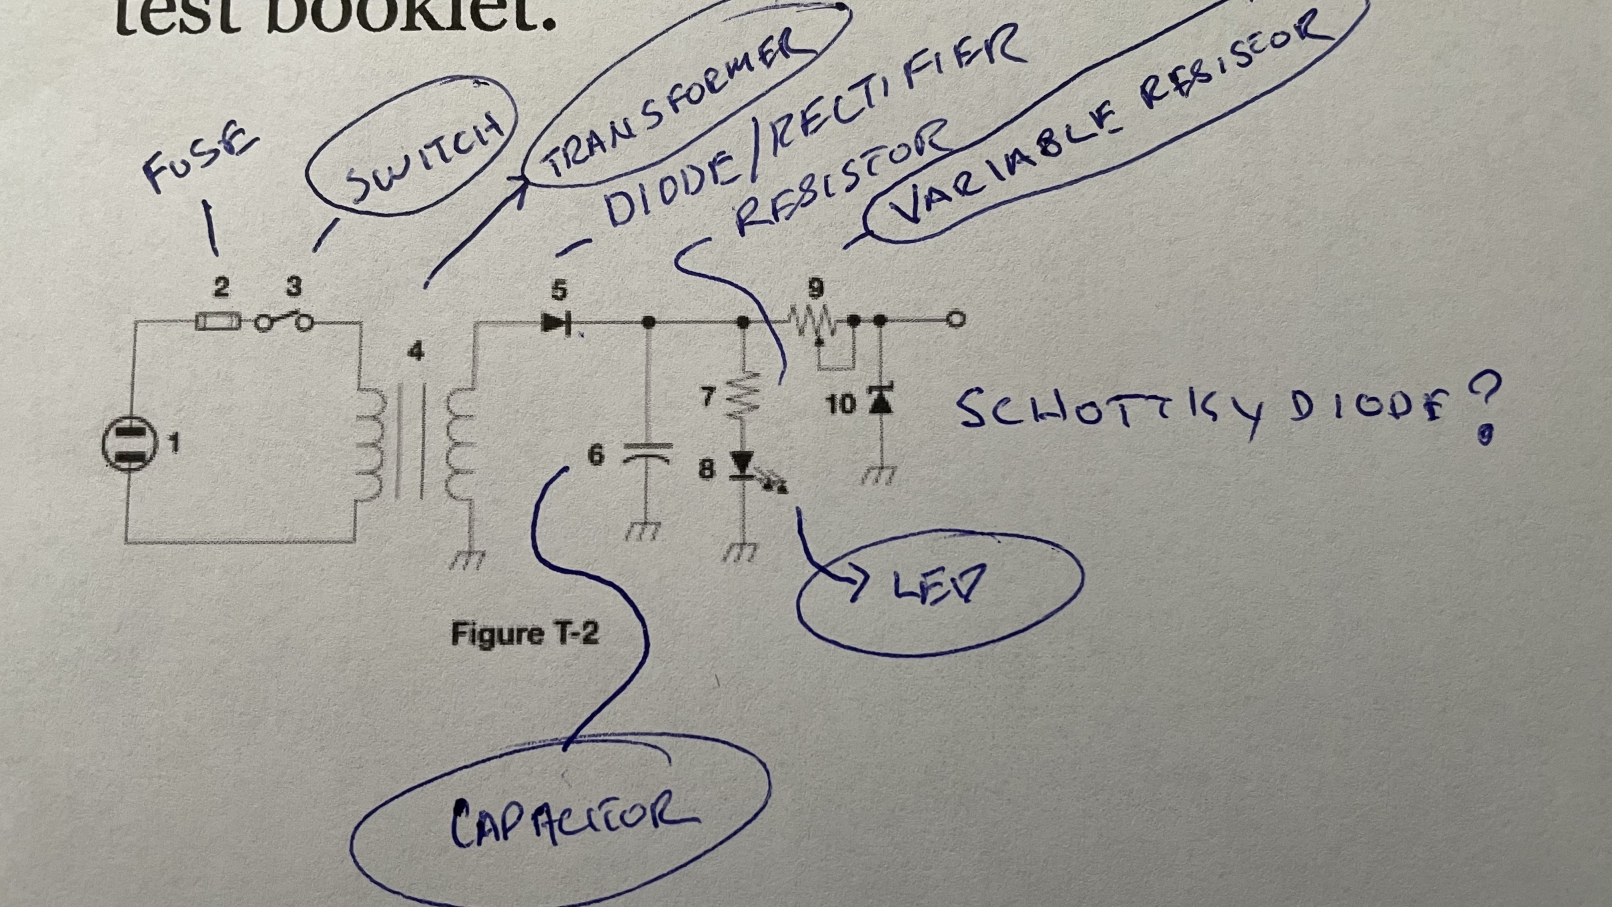 test booklet.
FUSE
SWITCH
TRANSFORMER
DIODE/RECTIFIER
RESISTOR
VARIABLE RESISTOR
2
3
4
5
9
1
6
7
8
10
SCHOTTKY DIODE?
LED
Figure T-2
CAPACITOR